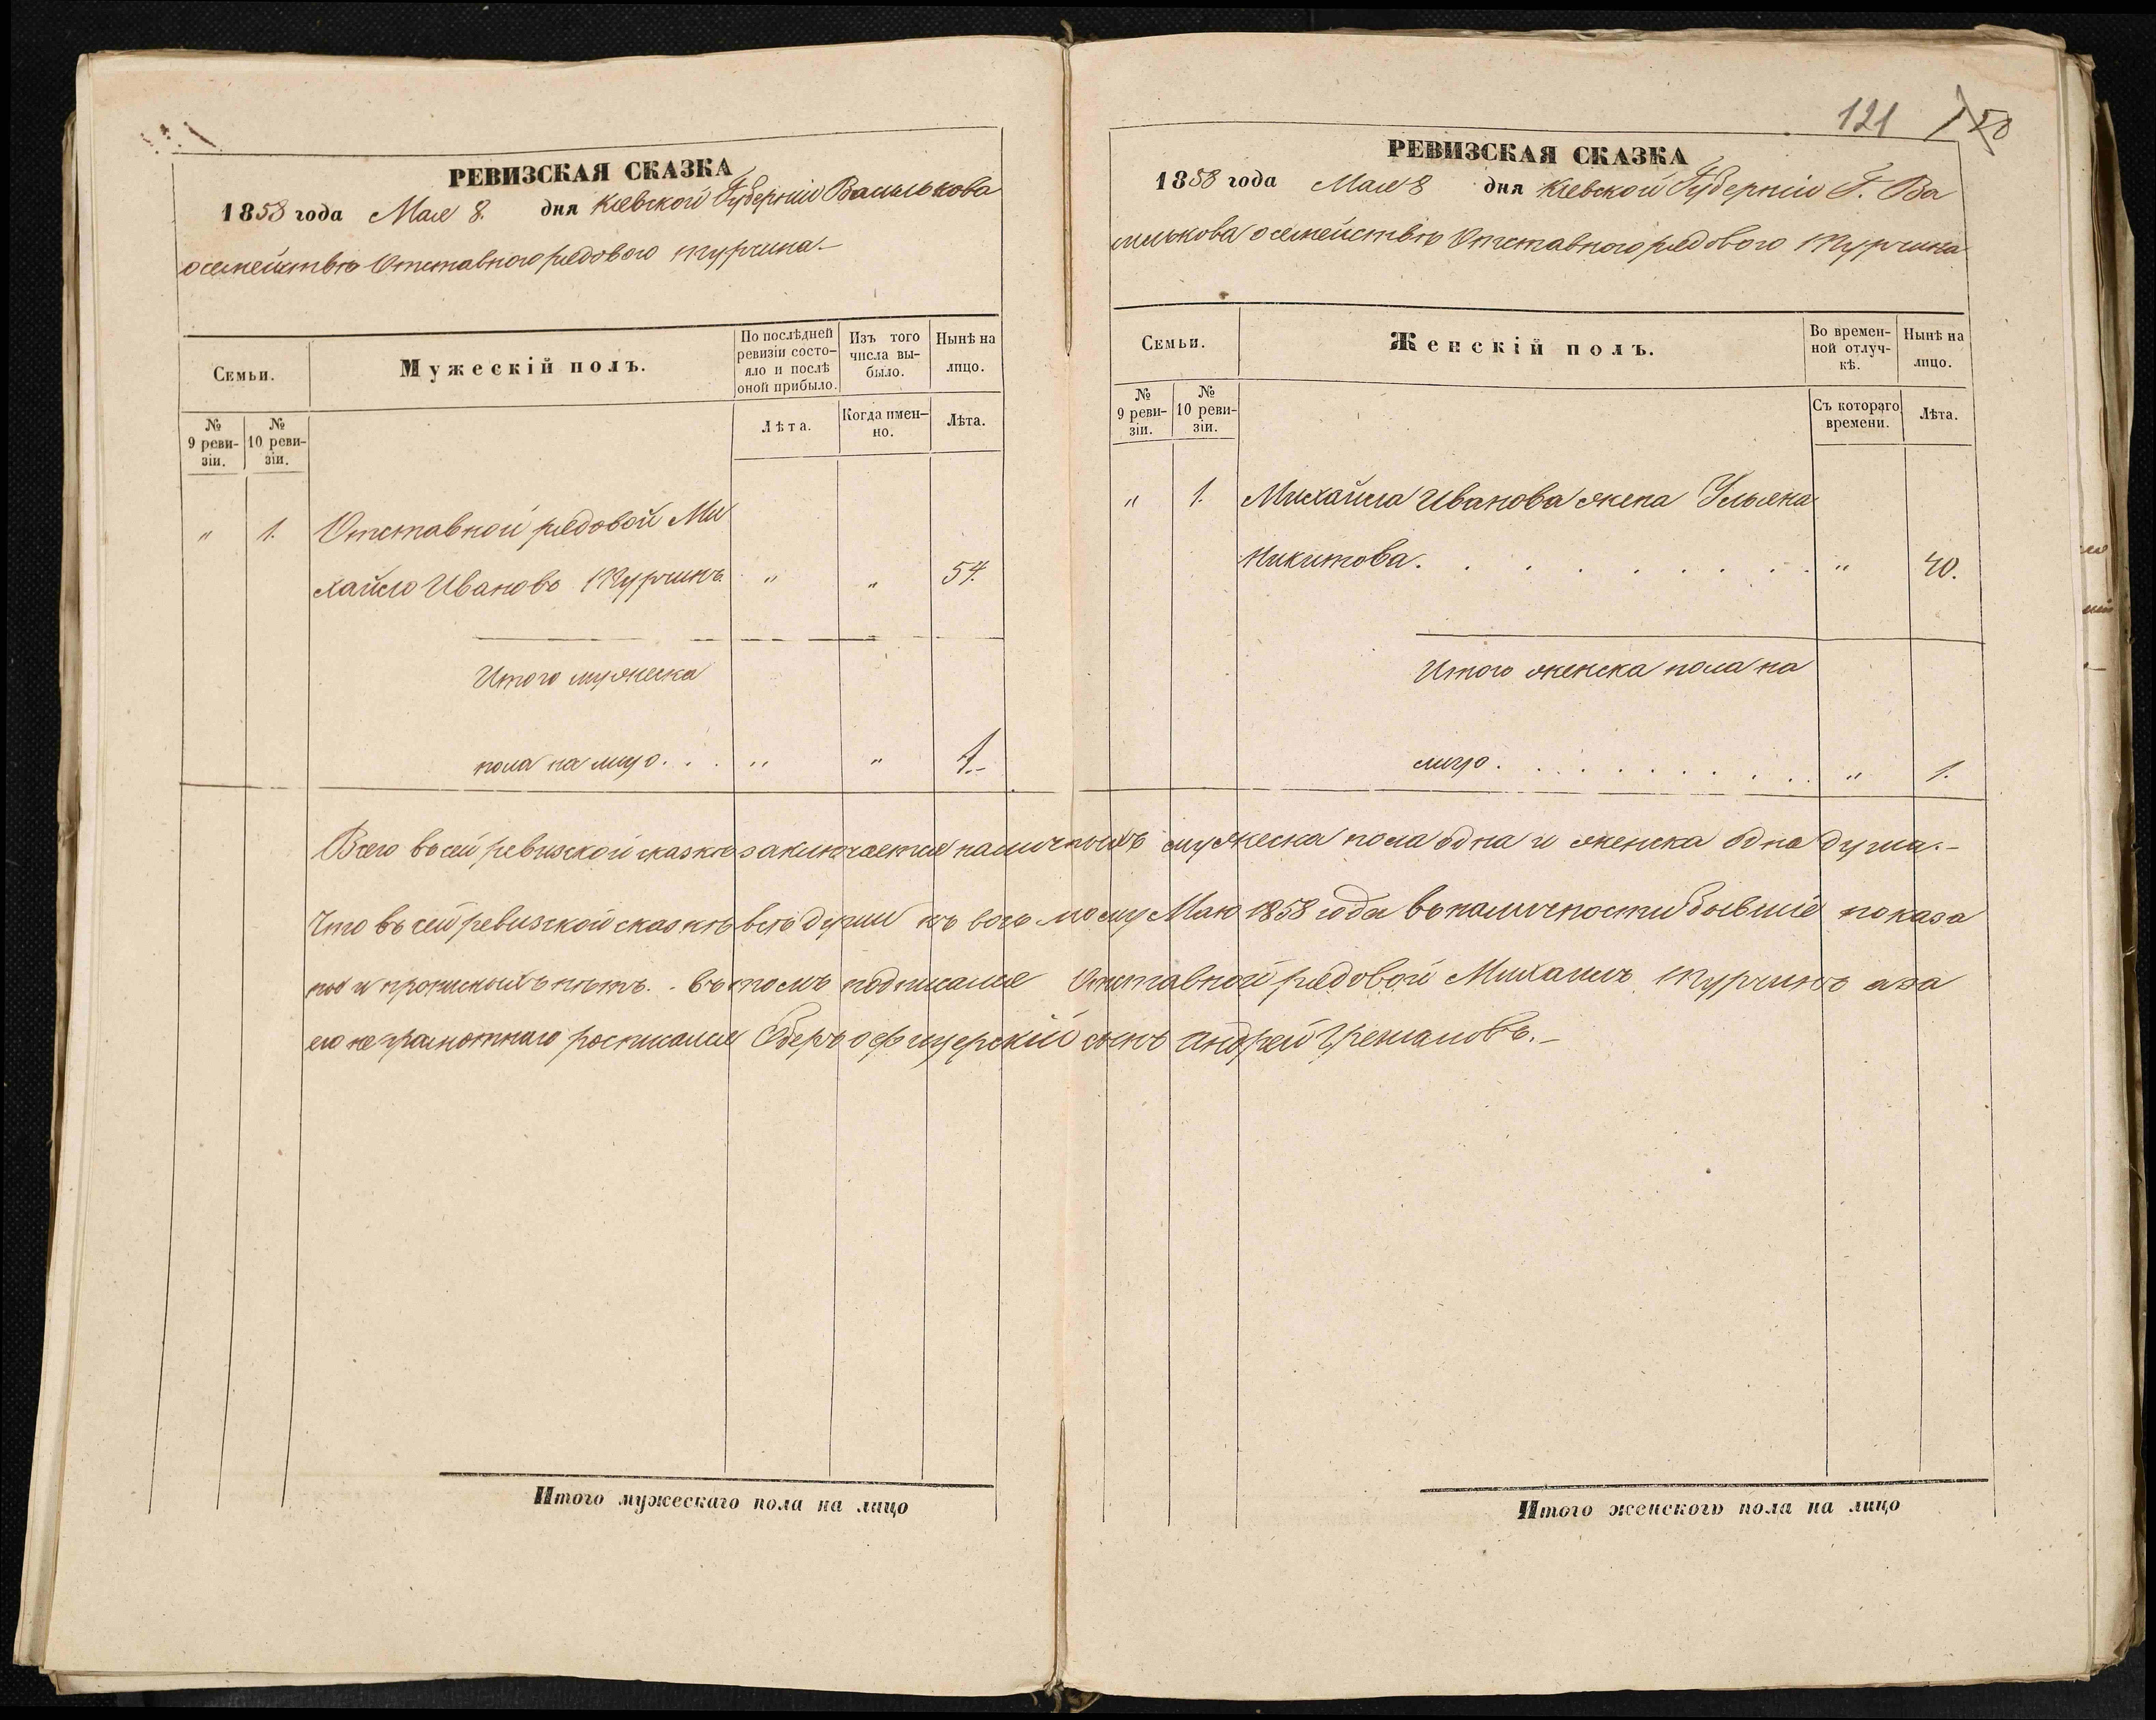 121 120
РЕВИЗСКАЯ СКАЗКА
1858 года Мая 8. дня Кіевской Губерніи Василькова
о семействѣ Отставного рядового Турчина.
Семьи.
Мужескій полъ.
По послѣдней ревизіи состо-
яло и послѣ
оной прибыло.
Изъ того
числа вы-
было.
Нынѣ на
лицо.
№
9 реви-
зіи.
№
10 реви-
зіи.
Лѣта.
Когда имен-
но.
Лѣта.
" 1. Отставной рядовой Ми
хайло Ивановъ Турчинъ. " " 54.
Итого мужеска
пола на лицо . . . " " 1.
Итого мужескаго пола на лицо
РЕВИЗСКАЯ СКАЗКА
1858 года Мая 8 дня Кіевской Губерніи Г. Ва
силькова о семействѣ Отставного рядового Турчина
Семьи.
Женскій полъ.
Во времен-
ной отлуч-
кѣ.
Нынѣ на
лицо.
№
9 реви-
зіи.
№
10 реви-
зіи.
Съ котораго
времени.
Лѣта.
" 1. Михайла Иванова жена Ульяна
Никитова. . . . . . . . . " 40.
Итого женска пола на
лицо . . . . . . . . . . " 1.
Всего въ сей ревизской сказкѣ заключается наличныхъ мужеска пола одна и женска одна душа.
Что въ сей ревизской сказкѣ всѣ души къ восьмому Маю 1858 года въ наличности бывшіе показа
ны и прописныхъ нѣтъ. въ томъ подписался Отставной рядовой Михаилъ Турчинъ а за
его не грамотнаго росписался Оберъ офицерскій сынъ Андрей
Итого женского пола на лицо